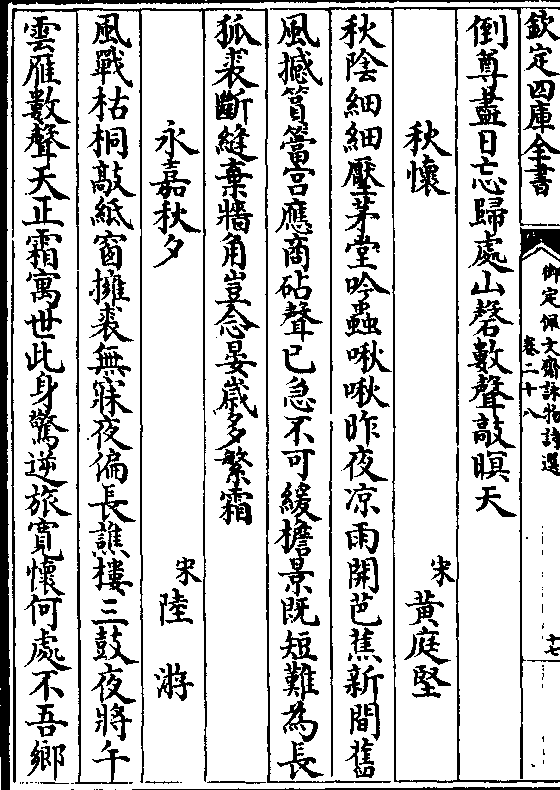 欽定四庫全書
御定佩文齋詠物詩選
卷二十八
十七
倒尊盡日忘歸處山磬數聲敲暝天
秋懷
宋 黃庭堅
秋陰細細壓茅堂吟蟲啾啾昨夜凉雨開芭蕉新間舊
風撼篔簹宮應商砧聲已急不可緩檐景既短難為長
狐裘斷縫棄牆角豈念晏歲多繁霜
永嘉秋夕
宋 陸游
風戰枯桐敲紙窗擁裘無寐夜偏長譙樓三鼓夜將午
雲雁數聲天正霜寓世此身驚逆旅寛懷何處不吾鄉